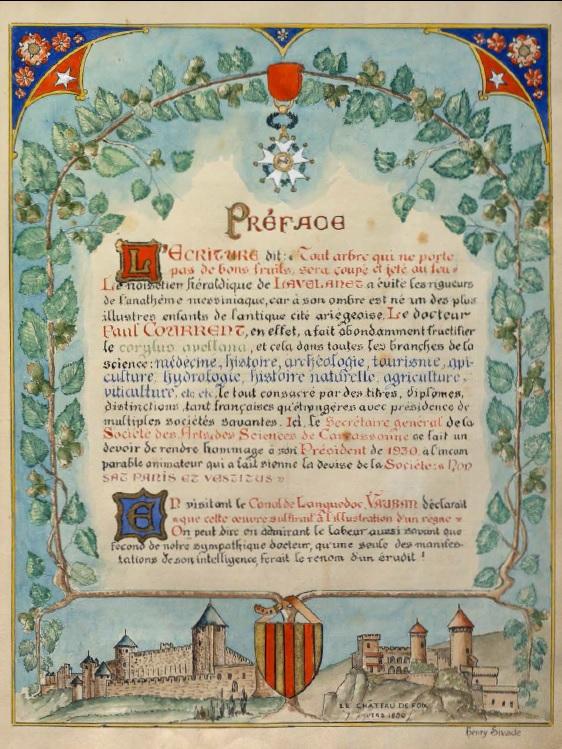 PRÉFACE
L'ECRITURE dit: « Tout arbre qui ne porte
pas de bons fruits, sera coupé et jeté au feu »
Le noisetier héraldique de LAVELANET a évité les rigueurs
de l'anathème messiniaque, car à son ombre est né un des plus
illustres enfants de l'antique cité ariégeoise. Le docteur
Paul COURRENT, en effet, a fait abondamment fructifier
le corylus avellana, et cela dans toutes les branches de la
science: médecine, histoire, archéologie, tourisme, api-
culture, hydrologie, histoire naturelle, agriculture,
viticulture, etc etc, le tout consacré par des titres, diplomes,
distinctions, tant françaises qu'étrangères avec présidence de
multiples sociétés savantes. Ici, le Secrétaire général de la
Société des Arts des Sciences de Carcassonne se fait un
devoir de rendre hommage à son Président de 1930, à l'incom
parable animateur qui a fait sienne la devise de la Société: « NON
SAT PANIS ET VESTITUS »
EN visitant le Canal de Languedoc, VAUBAN déclarait
« que cette œuvre suffirait à l'illustration d'un règne »
On peut dire en admirant le labeur aussi savant que
fécond de notre sympathique docteur, qu'une seule des manifes-
tations de son intelligence, ferait le renom d'un érudit !
LE CHATEAU DE FOIX
VERS 1850
Henry Sivade